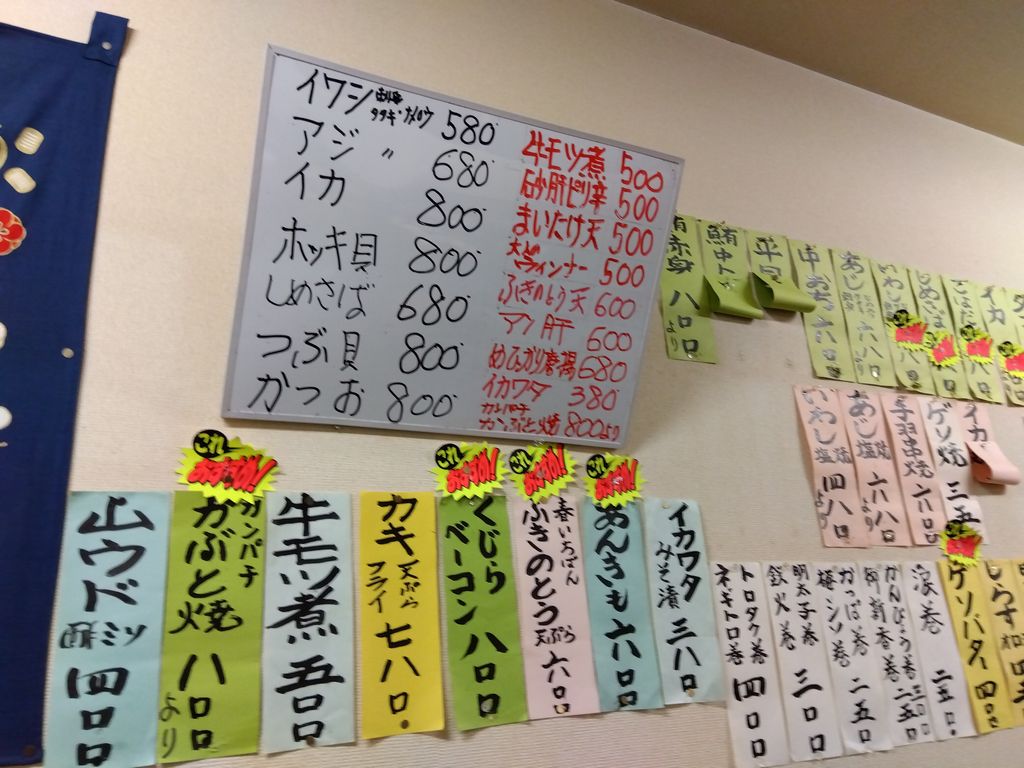 イワシ 刺身 タタキ ナメロウ 580
アジ 〃 680
イカ 800
ホッキ貝 800
しめさば 680
つぶ貝 800
かつお 800
牛モツ煮 500
砂肝ピリ辛 500
まいたけ天 500
ウィンナー 500
ふきのとう天 600
アン肝 600
めひかり唐揚 680
イカワタ 380
カンパチ
かぶと焼 800より
鮪赤身 八〇〇より
鮪中ト
平貝
中おち 六八〇
あじ 六八〇
いわし
しめさば
イカ
いわし塩焼 四八〇より
あじ塩焼 六八〇より
手羽串焼 六八〇
ゲソ焼 三五
イカ
これ おすすめ!
これ おすすめ!
これ おすすめ!
これ おすすめ!
山ウド 酢ミソ 四〇〇
カンパチ かぶと焼 八〇〇より
牛モツ煮 五〇〇
カキ 天ぷら フライ 七八〇
くじらベーコン 八〇〇
春いちばん ふきのとう 天ぷら 六〇〇
あんきも 六〇〇
イカワタ みそ漬 三八〇
トロタク巻 ネギトロ巻 四〇〇
明太子巻 鉄火巻 三〇〇
かっぱ巻 梅シソ巻 二五〇
かんぴょう巻 柳新香巻 二五〇
涙巻 二五〇
ゲソバター 四〇〇
しらす